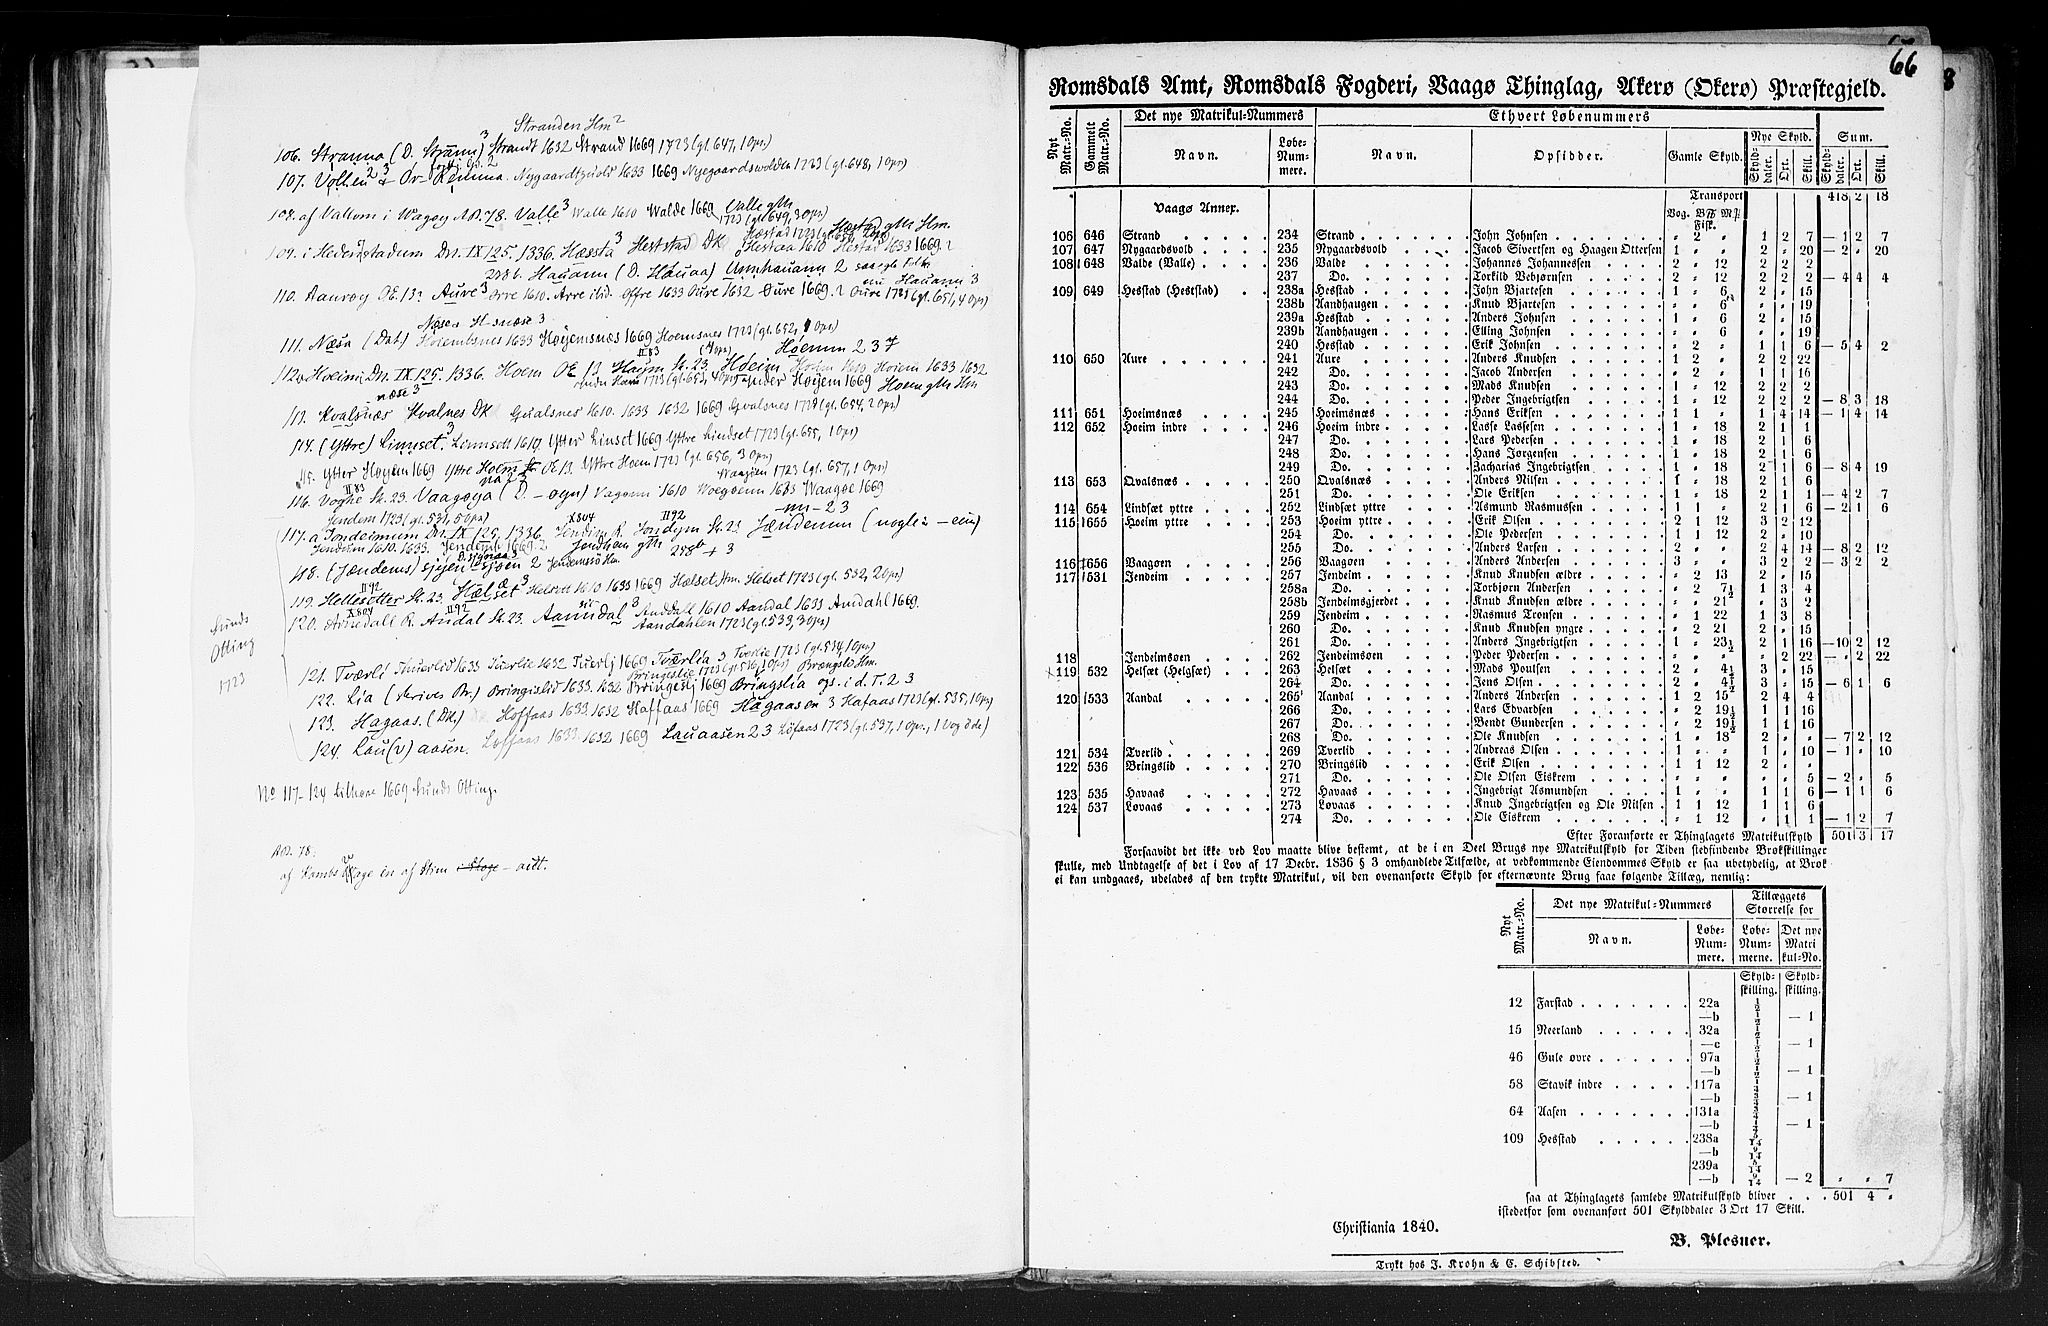 Stranden Hm 2
106. Stranna (D. Strann) 3 Strandt 1632 Strand 1669 1723 (gl. 647, 1 Opr)
107. Vollen 2 3 Nygaardtzuold 1633 1669 Nyegaardswolden 1723 (gl. 648, 1 Opr)
108. af Vallom i Wagøy AB. 78. Valle 3 Walle 1610 Walde 1669 Valle gHm 1723 (gl. 649, 3 Opr)
109. i Hederstadum Dn. IX 125. 1336. Hæsstá 3 Heststad DK Hestaa 1610 Hestad 1633 1669. 2
110. Aanrøy OE. 13. Aure 3 Orre 1610. Arre ibid. Offre 1633 Oure 1632 Øure 1669. 2 Oure 1723 (gl. 651, 4 Opr)
Nøsen H-snæse 3
111. Næsa (Dat.) Hoiembsnes 1633 Høyemsnæs 1669 Hoemsnes 1723 (gl. 652, 1 Opr)
112. Hoeimi Dn. IX 125. 1336. Hoem OE 13 Høeim Hoiem 1633 1632
Høyem 1669 Hoem gHm Hm
113. Kvalsnæs Kvalnes DK Qualsnes 1610. 1633 1632 1669 Qvalsnes 1723 (gl. 654, 2 Opr)
114. (Yttre) Linnset. 3 Linnsett 1610 Ytter Linset 1669 Yttre Lindset 1723 (gl. 655, 1 Opr)
115. Ytter Høyem 1669 Yttre Hoem OE 13. Yttre Hoem 1723 (gl. 656, 3 Opr)
Waagøen 1723 (gl. 657, 1 Opr)
116. Voghe Sk. 23. Vaagøya (D. - øyn) Vagøen 1610 Woegøenn 1633 Waagøe 1669
Jendem 1723 (gl. 531, 5 Opr)
117. a Jondeimum Dn. IX 125. 1336. Jendem R. Sk. 23 Jændemm (nogle: - eim)
Jendeim 1610. 1633. Jendem 1669. 2 Jendhem gHm
118. (Jændems) sjøen 2 Jendemssø Hm.
119. Hellesetter Sk. 23. Hælset 3 Helsett 1610 1633 1669 Hælset Hm. Helset 1723 (gl. 532, 2 Opr)
120. Arnedall R. Andal Sk. 23. Aanndal 3 Anddall 1610 Aandal 1633 Andahl 1669.
Aandahlen 1723 (gl. 533, 3 Opr)
Lunds
Otting
1723
121. Tværli Tuerlid 1633 Tuerlie 1632 Tuerlj 1669 Tværlia 3 Tværlie 1723 (gl. 534, 1 Opr)
Bringeslie 1723 (gl. 536, 1 Opr) Brængslid Hm.
122. Lia (skrives Br.) Bringislid 1633. 1632 Bringeslj 1669 Bringslia ogs. i d. T. 2 3
123. Hagaas. (DK.) Hoffaas 1633. 1632 Haffaas 1669 Hagaasen 3 Hafaas 1723 (gl. 535, 1 Opr)
124. Lau(v)aasen. Loffaas 1633. 1632 1669 Lauaasen 2 3 Løfaas 1723 (gl. 537, 1 Opr., 1 Vog øde)
No 117-124 tilhøre 1669 Lunds Otting.
AB. 78:
af Kambs Vage en af Stim i Stoge - aitt.
66
Romsdals Amt, Romsdals Fogderi, Vaagø Thinglag, Akerø (Okerø) Præstegjeld.
Nyt Matr.-No. Gammelt Matr.-No. Det nye Matrikul-Nummers Ethvert Løbenummers
Navn. Løbe-Num-mere. Navn. Opsidder. Gamle Skyld. Nye Skyld. Sum.
Skyld-daler. Ort. Skill. Skyld-daler. Ort. Skill.
Transport 418 2 18
Vaagø Annex. Vog. B℔ M℔
Fisk.
106 646 Strand 234 Strand John Johnsen " 2 " 1 2 7 — 1 2 7
107 647 Nygaardsvold 235 Nygaardsvold Jacob Sivertsen og Haagen Ottersen 1 " " 2 " 20 — 2 " 20
108 648 Valde (Valle) 236 Valde Johannes Johannessen 2 " 12 2 2 2
237 Do. Torkild Vebjørnsen 2 " 12 2 2 2 — 4 4 4
109 649 Hesstad (Heststad) 238a Hesstad John Bjartesen 1 " 6 2 " 15
238b Aandhaugen Knud Bjartesen " " 6 " " 19
239a Hesstad Anders Johnsen 1 " 6 2 " 15
239b Aandhaugen Elling Johnsen " " 6 " " 19
240 Hesstad Erik Johnsen " 2 " 1 1 6 — 5 4 2
110 650 Aure 241 Aure Anders Knudsen 1 2 " 2 2 22
242 Do. Jacob Andersen " 2 " 1 1 16
243 Do. Mads Knudsen 1 " 12 2 2 2
244 Do. Peder Ingebrigtsen 1 " 12 2 2 2 — 8 3 18
111 651 Hoeimsnæs 245 Hoeimsnæs Hans Eriksen 1 1 " 1 4 14 — 1 4 14
112 652 Hoeim indre 246 Hoeim indre Lasse Lassesen 1 " 18 2 1 1
247 Do. Lars Pedersen 1 " 18 2 1 6
248 Do. Hans Jørgensen 1 " 18 2 1 6
249 Do. Zacharias Ingebrigtsen 1 " 18 2 1 6 — 8 4 19
113 653 Qvalsnæs 250 Qvalsnæs Anders Nilsen 1 " 18 2 1 6
251 Do. Ole Eriksen 1 " 18 2 1 1 — 4 2 7
114 654 Lindsæt yttre 252 Lindsæt yttre Asmund Rasmussen 1 1 " 2 1 6 — 2 1 6
115 655 Hoeim yttre 253 Hoeim yttre Erik Olsen 2 1 12 3 2 12
254 Do. Ole Pedersen 1 1 12 2 " 10
255 Do. Anders Larsen 2 " " 2 4 14 — 8 2 12
116 656 Vaagøen 256 Vaagøen Anders Andersen 3 " " 3 2 2 — 3 2 2
117 531 Jendeim 257 Jendeim Knud Knudsen ældre " 2 13 2 " 15
258a Do. Torbjørn Andersen " 2 7½ 1 3 4
258b Jendeimsgjerdet Knud Knudsen ældre " " 21 " 3 2
259 Jendeim Rasmus Tronsen " 1 22 1 3 8
260 Do. Knud Knudsen yngre " 2 21 2 " 15
261 Do. Anders Ingebrigtsen 1 " 23½ 2 1 16 — 10 2 12
118 Jendeimsøen 262 Jendeimsøen Peder Pedersen " 2 22 — " 2 22
119 532 Helsæt (Helgsæt) 263 Helsæt Mads Poulsen 2 " 4½ 3 " 15
264 Do. Jens Olsen 2 " 4½ 3 " 15 — 6 1 6
120 533 Aandal 265 Aandal Anders Andersen 1 2 15 2 4 4
266 Do. Lars Edvardsen " 2 19½ 1 1 16
267 Do. Bendt Gundersen " 2 19½ 1 1 16
268 Do. Ole Knudsen 1 " 18 2 " " — 7 2 12
121 534 Tverlid 269 Tverlid Andreas Olsen 1 " " 1 " 10 — 1 " 10
122 536 Bringslid 270 Bringslid Erik Olsen 1 1 12 2 " "
271 Do. Ole Olsen Eiskrem " " 5 — 2 " 5
123 535 Havaas 272 Havaas Ingebrigt Asmundsen 1 " " 1 1 6 — 1 1 6
124 537 Løvaas 273 Løvaas Knud Ingebrigtsen og Ole Nilsen 1 1 12 1 1 6
274 Do. Ole Eiskrem " 1 12 " 1 1 — 1 2 7
Efter Foranførte er Thinglagets Matrikulskyld 501 3 17
Forsaavidt det ikke ved Lov maatte blive bestemt, at de i en Deel Brugs nye Matrikulskyld for Tiden stedfindende Brøkskillinger
skulle, med Undtagelse af det i Lov af 17 Decbr. 1836 § 3 omhandlede Tilfælde, at vedkommende Eiendommes Skyld er saa ubetydelig, at Brøk
ei kan undgaaes, udelades af den trykte Matrikul, vil den ovenanførte Skyld for efternævnte Brug faae følgende Tillæg, nemlig:
Nyt Matr.-No. Det nye Matrikul-Nummers Tillæggets Størrelse for
Navn. Løbe-Num-mere. Løbe-Num-merne. Det nye Matri kul-No.
Skyld-skilling. Skyld-skilling.
12 Farstad 22a ½
—b ½ — 1
15 Neerland 32a ½
—c ½ — 1
46 Gule øvre 97a ½
—b ½ — 1
58 Stavik indre 117a
—b — 1
64 Aasen 131a
—b — 1
109 Hesstad 238a 5/14
—b 9/14
239a 5/14
—b 9/14 — 2 " " 7
saa at Thinglagets samlede Matrikulskyld bliver 501 4 "
istedetfor som ovenanført 501 Skylddaler 3 Ort 17 Skill.
Christiania 1840.
B. Plesner.
Trykt hos J. Krohn & C. Schibsted.